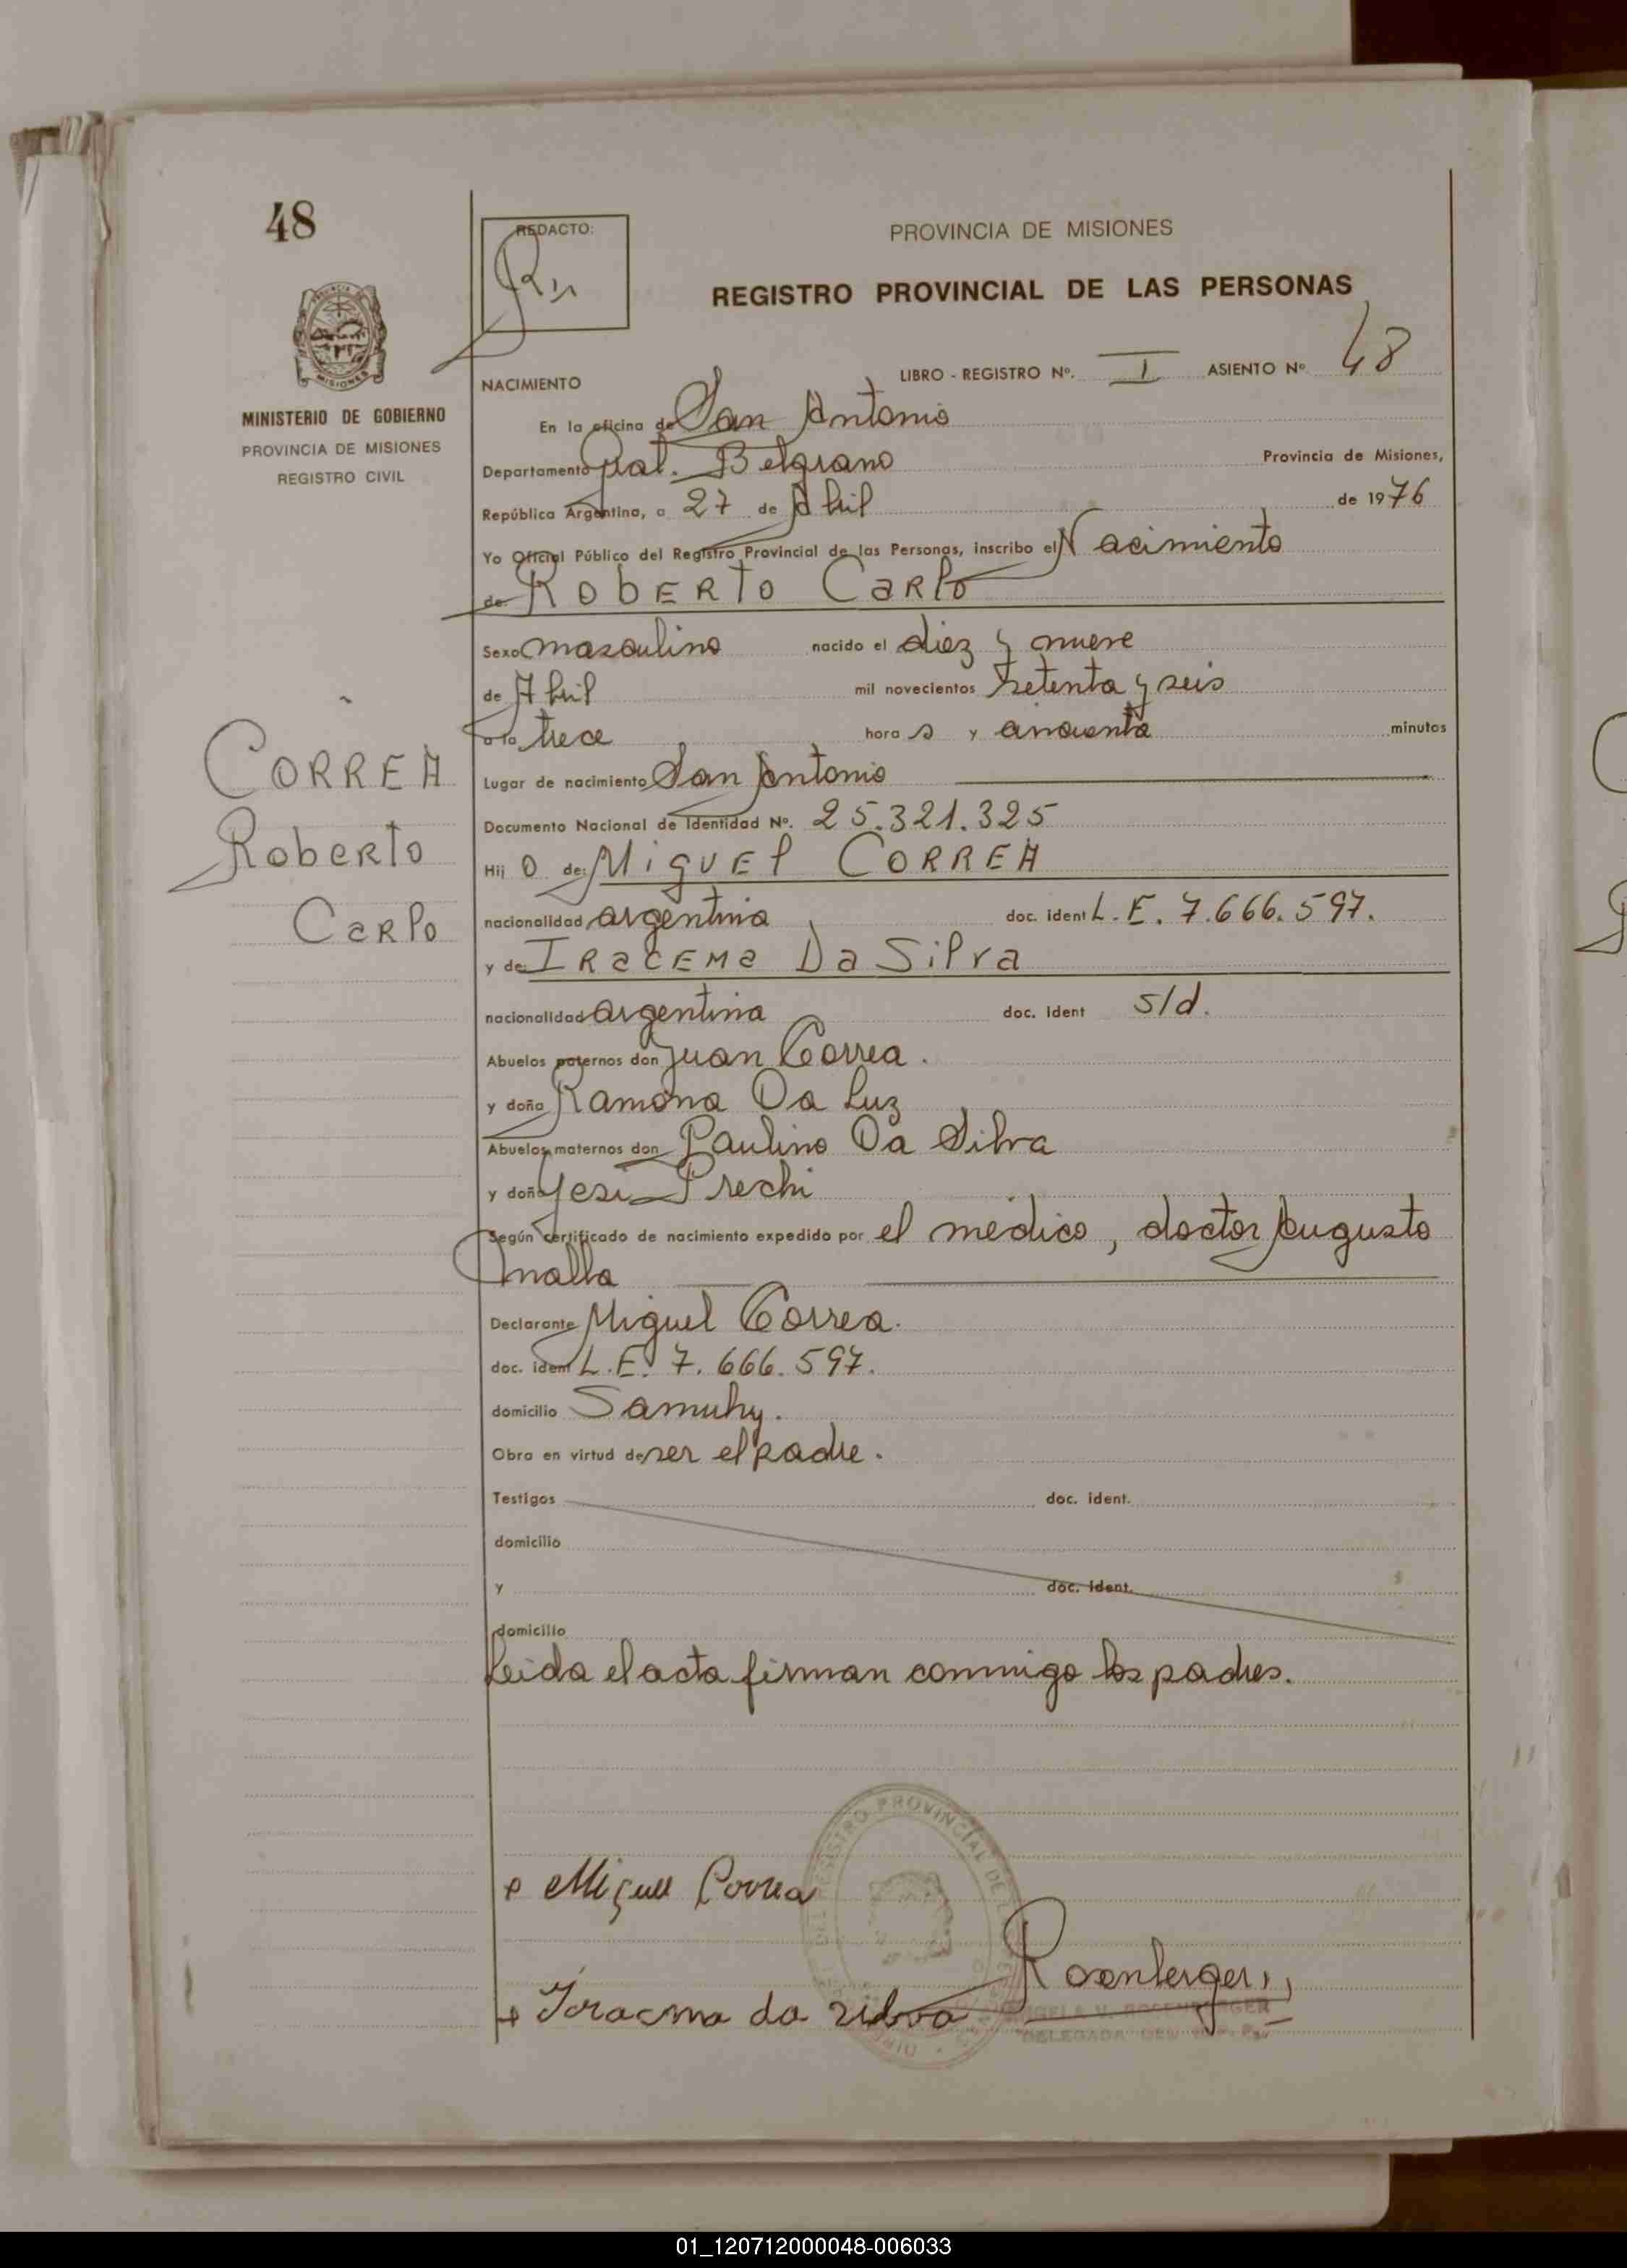 48
REDACTO:
PROVINCIA DE MISIONES
REGISTRO PROVINCIAL DE LAS PERSONAS
MISIONES
MINISTERIO DE GOBIERNO
PROVINCIA DE MISIONES
REGISTRO CIVIL
LIBRO - REGISTRO Nº. I ASIENTO Nº 48
NACIMIENTO
En la oficina de San Antonio
Departamento Gral. Belgrano Provincia de Misiones,
República Argentina, a 27 de Abril de 1976
Yo Oficial Público del Registro Provincial de las Personas, inscribo el Nacimiento
de ROBERTO CARLO
Sexo masculino nacido el diez y nueve
de Abril mil novecientos setenta y seis
a la trece hora s y cincuenta minutos
CORREA
Roberto
Carlo
Lugar de nacimiento San Antonio
Documento Nacional de Identidad Nº. 25.321.325
Hij o de: MIGUEL CORREA
nacionalidad argentina doc. ident L.E. 7.666.597.
y de: IRACEMA Da Silva
nacionalidad argentina doc. ident s/d.
Abuelos paternos don Juan Correa.
y doña Ramona Da Luz
Abuelos maternos don Paulino Da Silva
y doña Yesi Prechi
Según certificado de nacimiento expedido por el médico, doctor Augusto
Malla
Declarante Miguel Correa.
doc. ident L.E. 7.666.597.
domicilio Samuhy.
Obra en virtud de ser el padre.
Testigos doc. ident.
domicilio
y doc. ident.
domicilio
Leida el acta firman conmigo los padres.
Miguel Correa
Rosenberger
Iracma da silva
ROSENBERGER
DELEGADA
REGISTRO PROVINCIAL DE
01_120712000048-006033